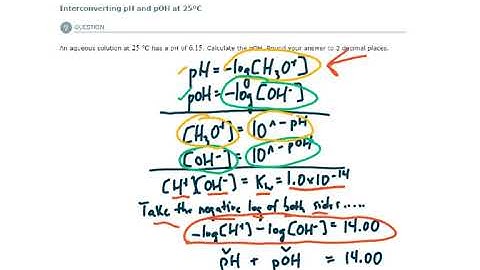 Interconverting pH and pOH at 25°C
QUESTION
An aqueous solution at 25 °C has a pH of 6.15. Calculate the pOH. Round your answer to 2 decimal places.
pH = -log[H₃O⁺]
pOH = -log[OH⁻]
[H₃O⁺] = 10^-pH
[OH⁻] = 10^-pOH
[H⁺][OH⁻] = Kw = 1.0x10⁻¹⁴
Take the negative log of both sides.....
-log[H⁺] - log[OH⁻] = 14.00
pH + pOH = 14.00